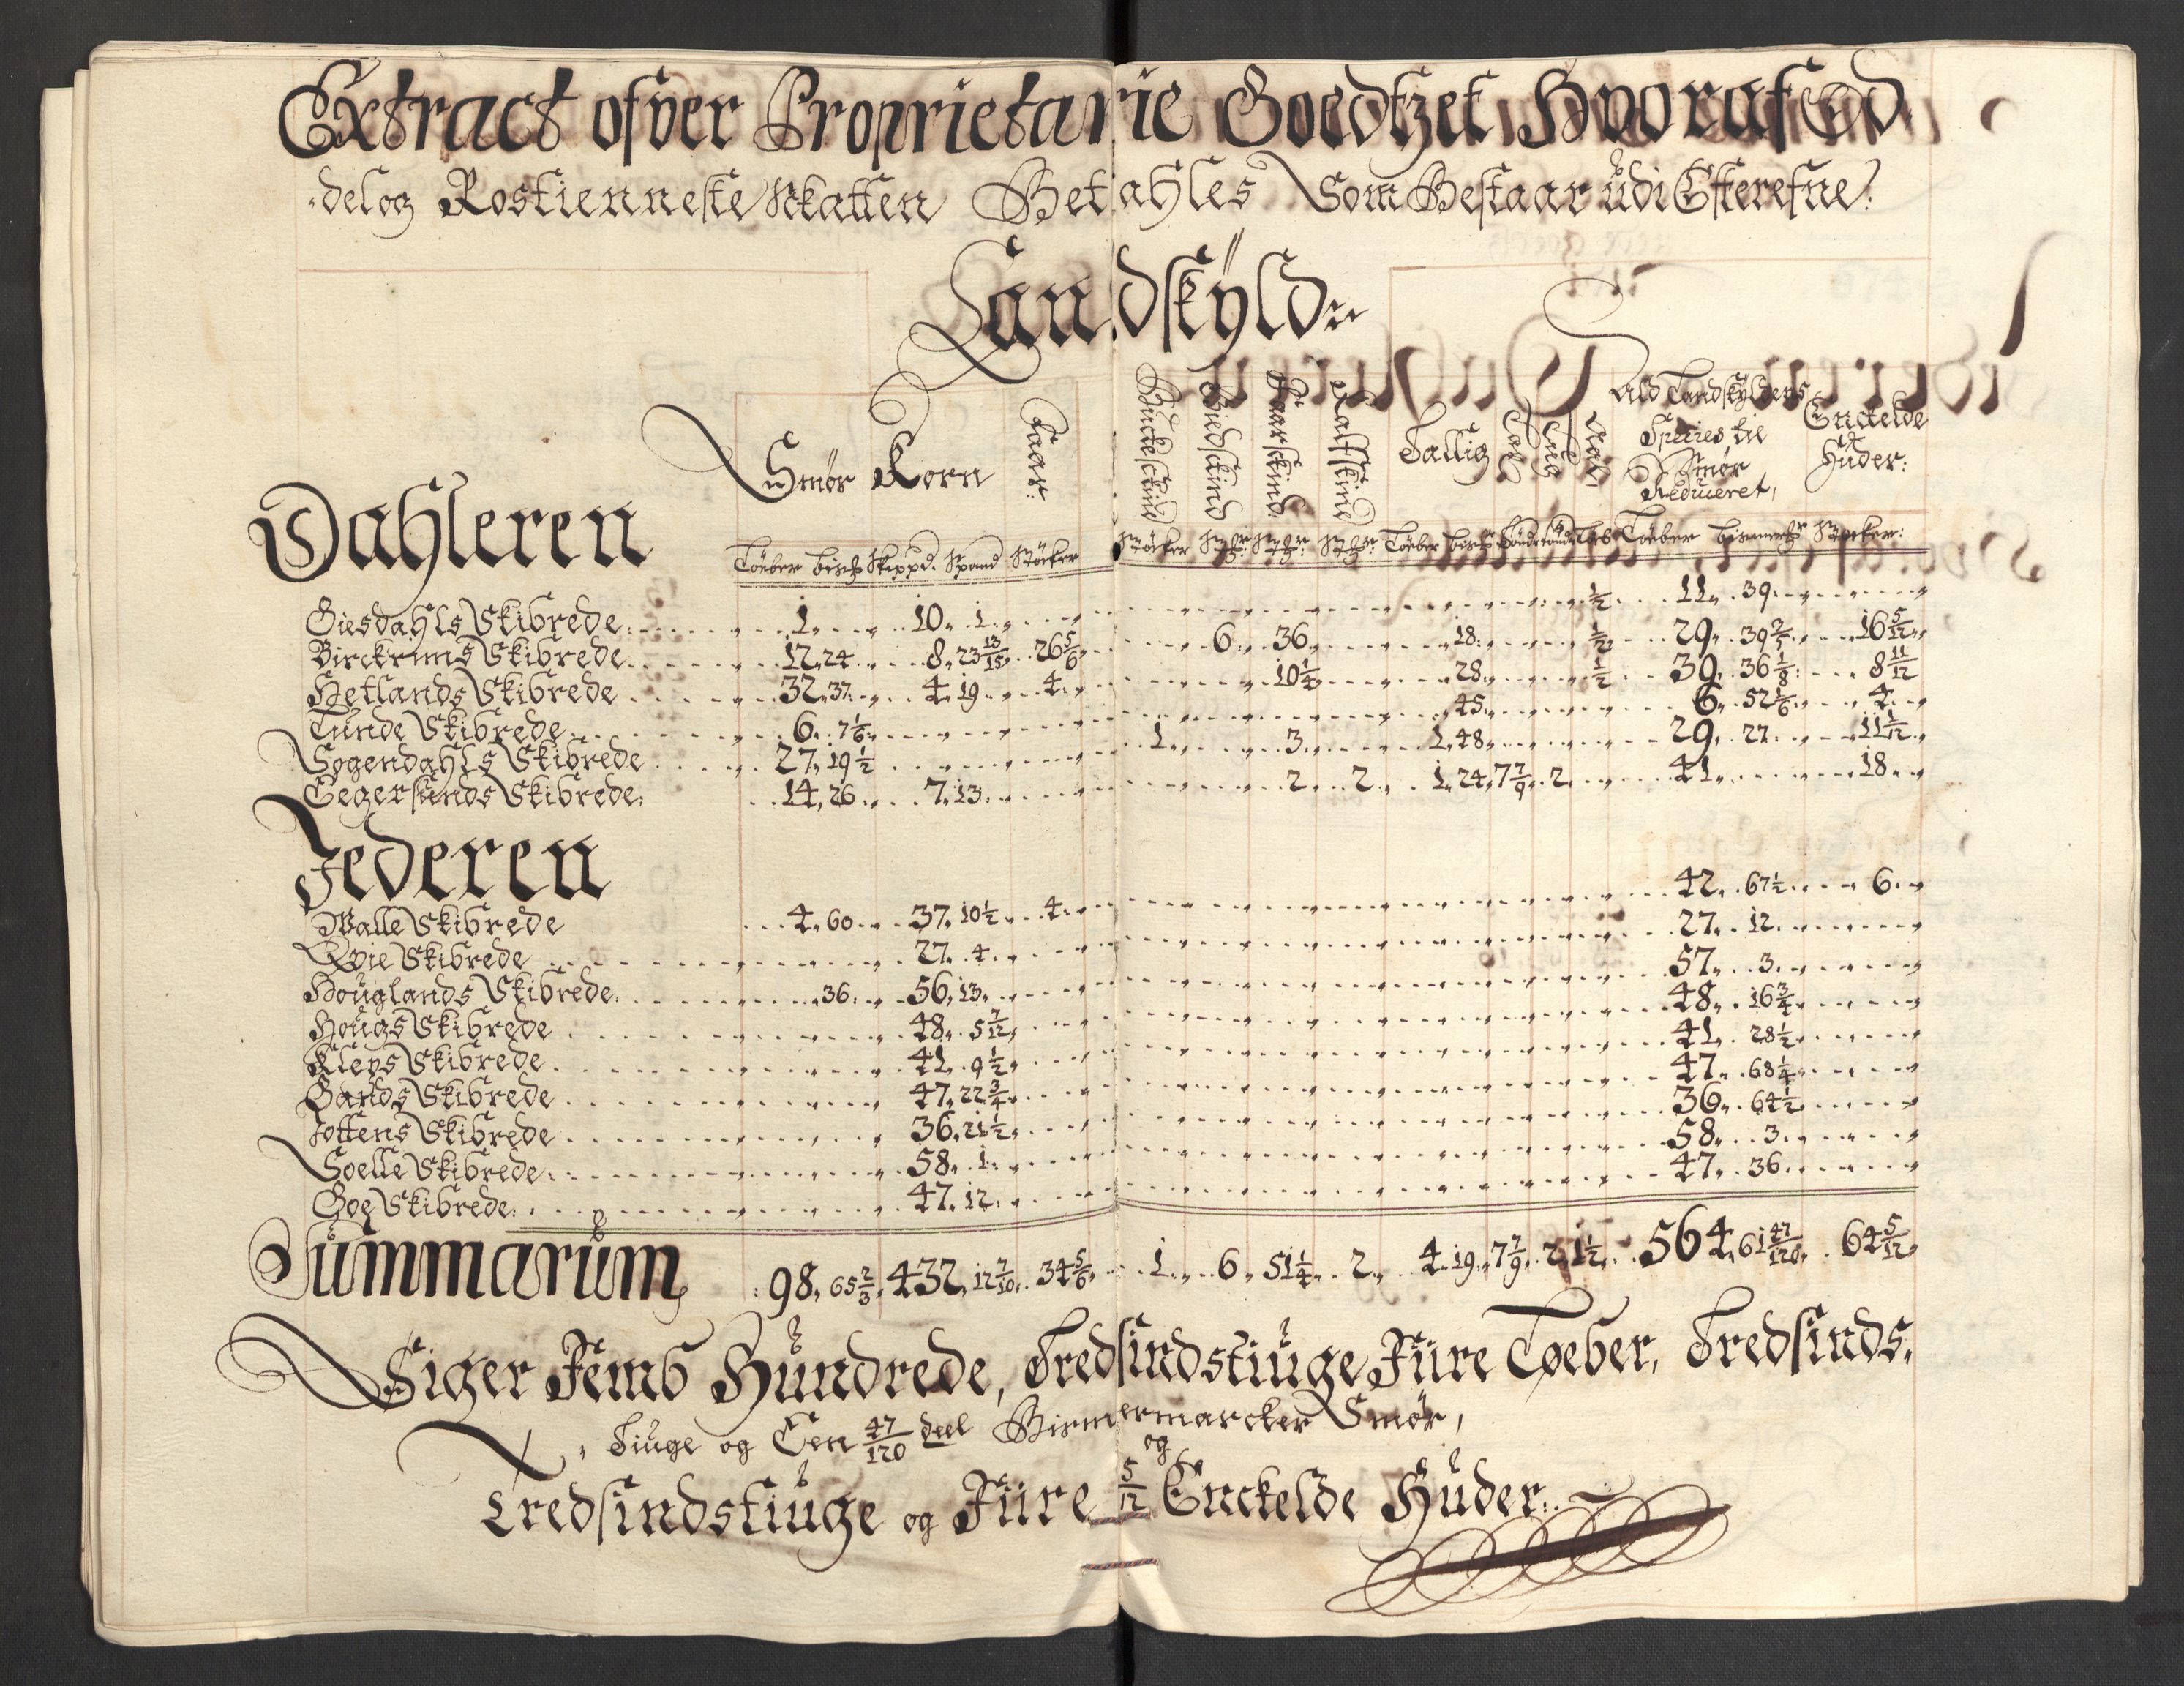 Extract ofver Proprietarie Goedtzet Hvoraf Od
delog Rostienneste Skatten Betahles Som Bestaar udi Efterefne:
Landskÿld
Smør Korn Faar: Bucke skind Giedskind Faarskind Kalfskind Tallig Ald Landskÿldens Species til Smør Reduceret, Enckelde Huder:
Dahleren
Töeber bismß Skippd. Spand Støcker Støcker Støchr: Støchr: Støchr: Töeber bismß Töeber bismerß Støcker:
Giesdahls Skibrede: 1 10 1 1/2 11 39
Birckrims Skibrede 12 24 8 23 13/15 26 5/6 6 36 18 1/2 29 39 2/5 16 5/12
Hetlands Skibrede 32 37 4 19 4 10 1/4 28 1/2 39 36 1/8 8 11/12
Lunde Skibrede 6 7 1/6 45 6 52 1/6 4
Sogendahls Skibrede 27 19 1/2 1 3 1 48 29 27 11 1/12
Eegersunds Skibrede: 14 26 7 13 2 2 1 24 7 7/9 2 41 18
Jederen
Walle Skibrede 4 60 37 10 1/2 4 42 67 1/2 6
Qvie Skibrede 27 4 27 12
Houglands Skibrede 36 56 13 57 3
Hougs Skibrede 48 5 7/12 48 16 3/4
Kleps Skibrede 41 9 1/2 41 28 1/2
Gands Skibrede 47 22 3/4 47 68 1/4
Jottens Skibrede 36 21 1/2 36 64 1/2
Soelle Skibrede 58 1 58 3
Goe Skibrede 47 12 47 36
Summarum 98 65 2/3 432 12 7/10 34 5/6 1 6 51 1/4 2 4 19 7 7/9 2 1 1/2 564 61 47/120 64 5/12
Siger Femb Hundrede, Tredsindstiuge Fiire Tøeber, Tredsinds,
Tiuge og Een 47/120 deel Bismermarcker Smør,
og
Tredsindstiuge og Fiire 5/12 Enckelde Huder: